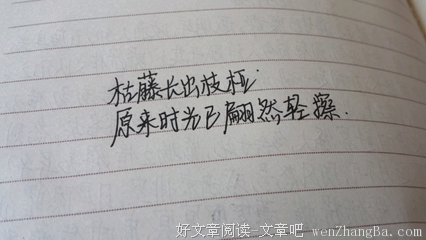 枯藤长出枝桠
原来时光已翩然轻擦.
好文章阅读-文章吧 wenZhangBa.com